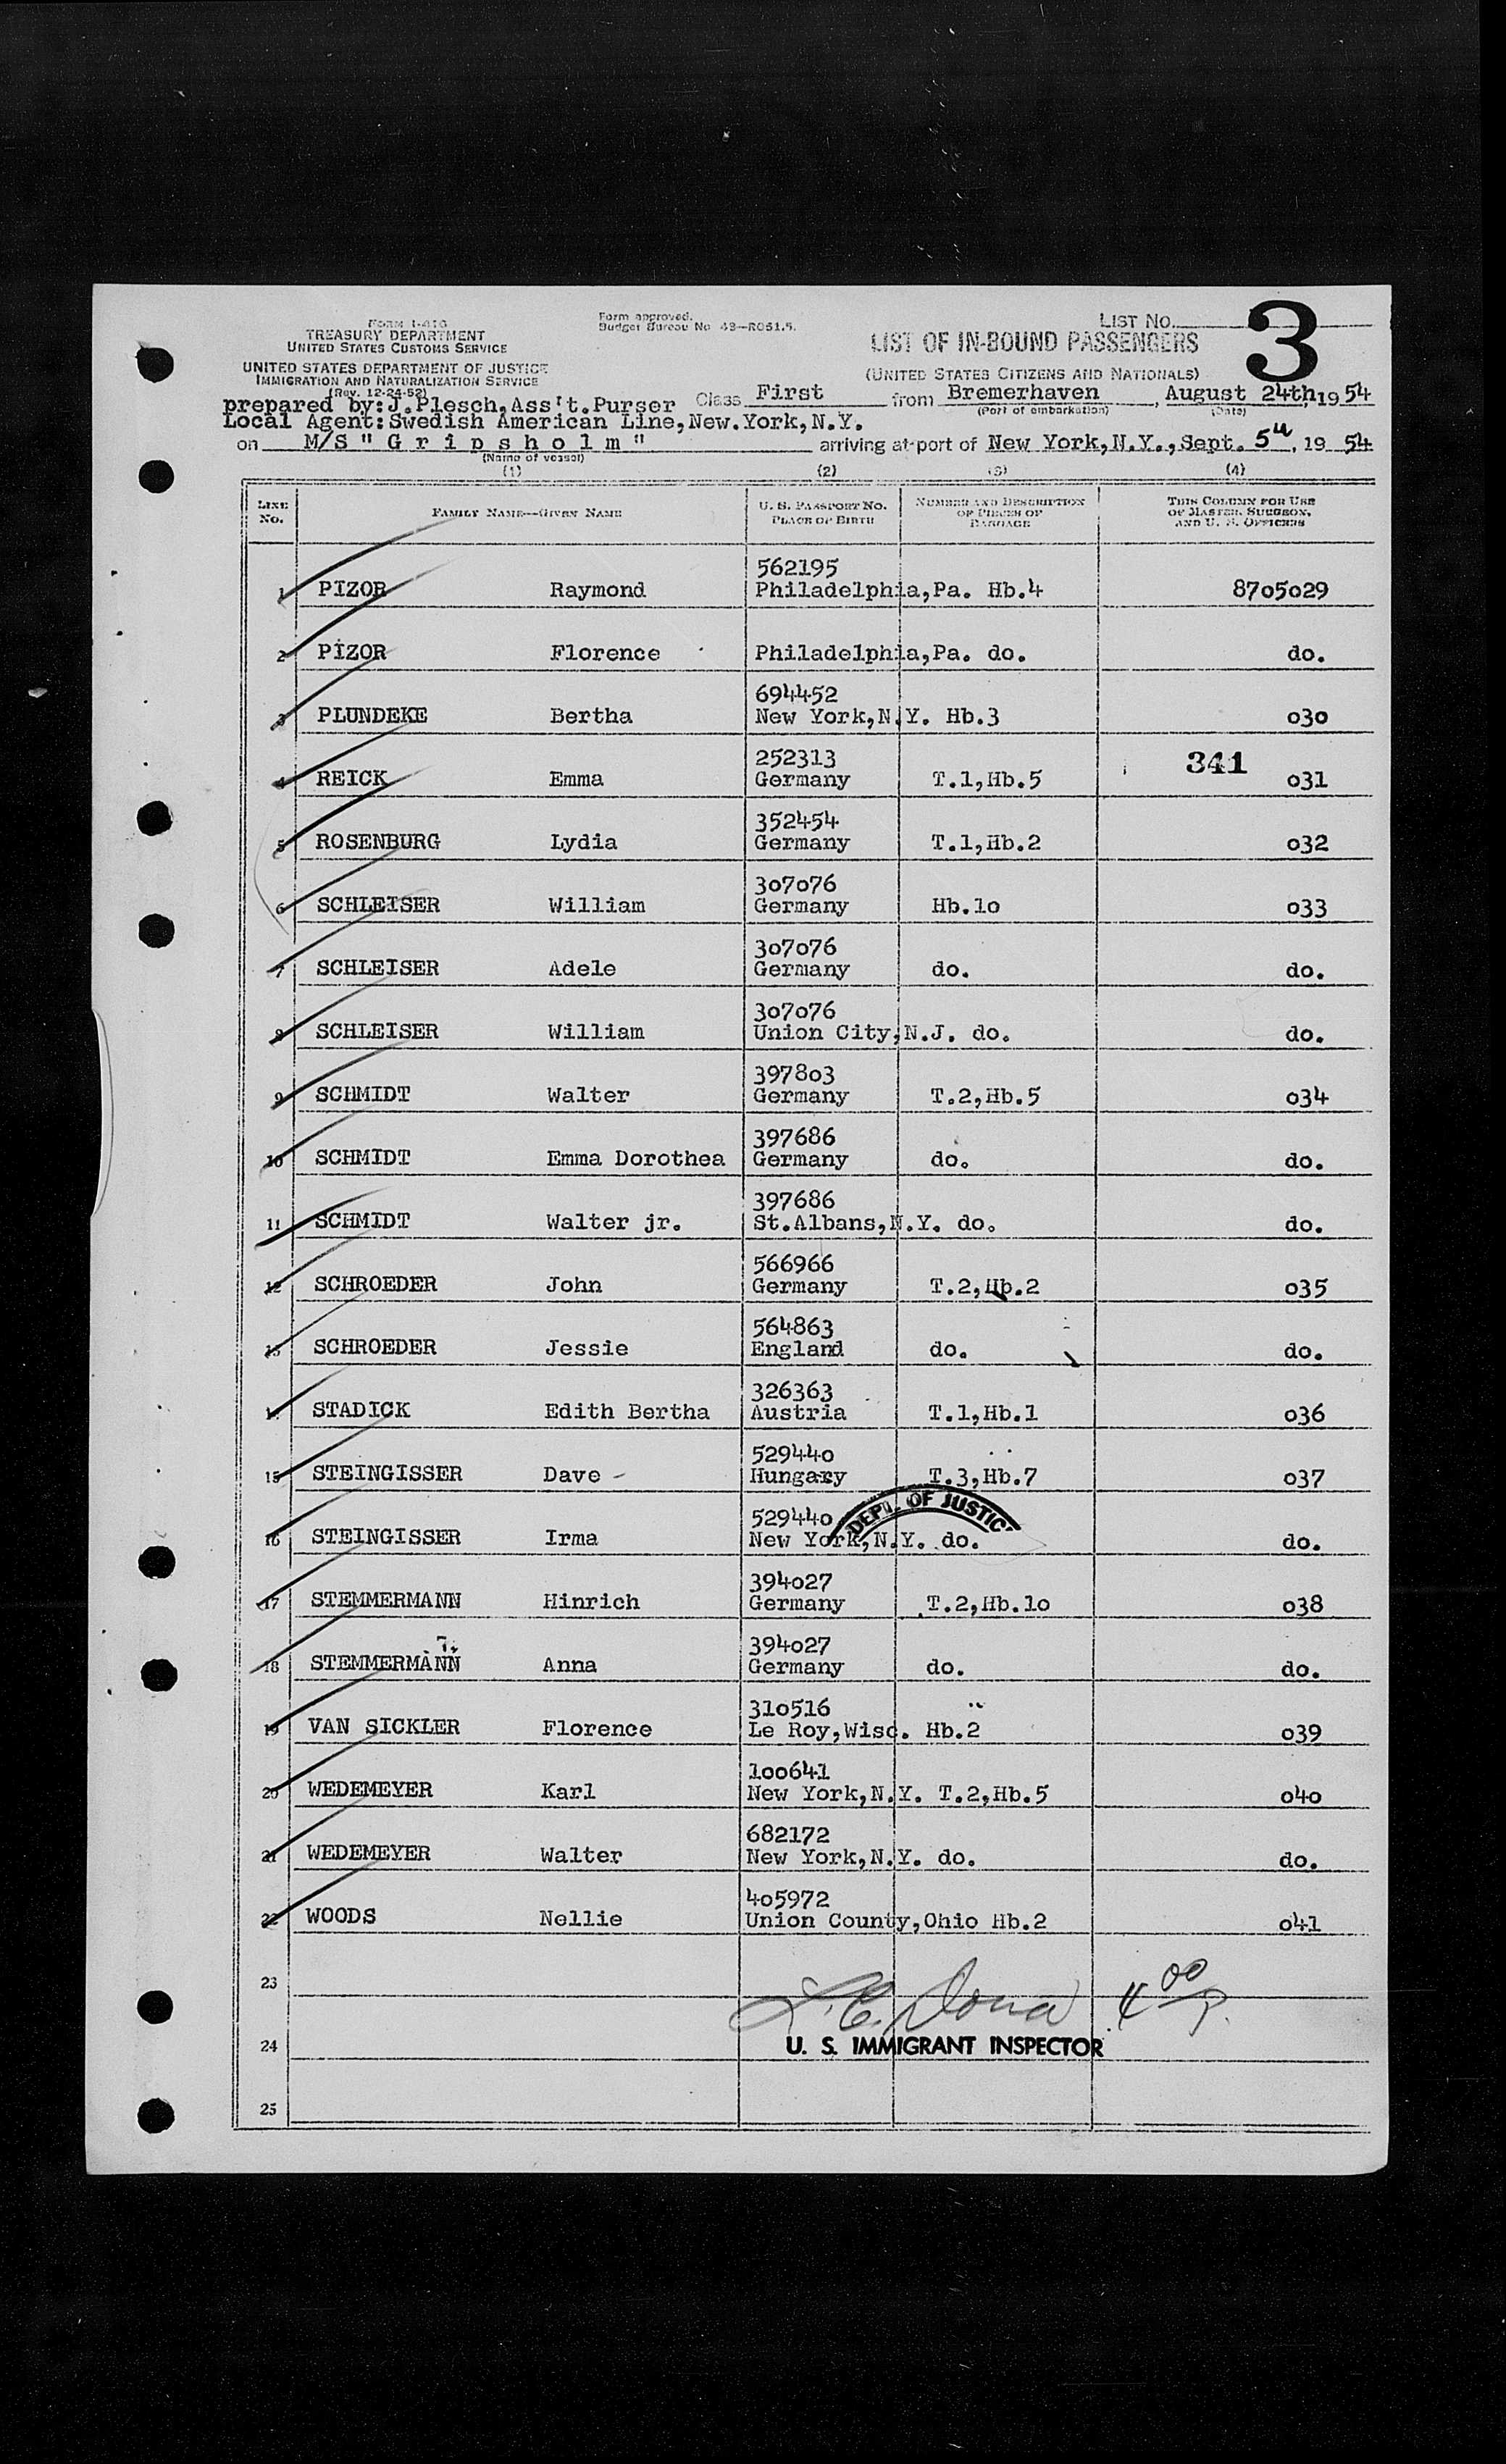 FORM I-416
TREASURY DEPARTMENT
UNITED STATES CUSTOMS SERVICE
UNITED STATES DEPARTMENT OF JUSTICE
IMMIGRATION AND NATURALIZATION SERVICE
(Rev. 12-24-52)
Form approved.
Budget Bureau No. 43—R051.5.
LIST No. 3
LIST OF IN-BOUND PASSENGERS
(UNITED STATES CITIZENS AND NATIONALS)
prepared by:J.Plesch,Ass't.Purser Class First from Bremerhaven, August 24th,1954
(Port of embarkation) (Date)
Local Agent:Swedish American Line,New.York,N.Y.
on M/S " G r i p s h o l m " arriving at port of New York,N.Y.,Sept. 5th, 19 54
(Name of vessel)
(1) (2) (3) (4)
LINE No. FAMILY NAME—GIVEN NAME U. S. PASSPORT No. PLACE OF BIRTH NUMBER AND DESCRIPTION OF PIECES OF BAGGAGE THIS COLUMN FOR USE OF MASTER, SURGEON, AND U. S. OFFICERS
562195
1 PIZOR Raymond Philadelphia,Pa. Hb.4 8705029
2 PIZOR Florence Philadelphia,Pa. do. do.
694452
3 PLUNDEKE Bertha New York,N.Y. Hb.3 030
252313 341
4 REICK Emma Germany T.1,Hb.5 031
352454
5 ROSENBURG Lydia Germany T.1,Hb.2 032
307076
6 SCHLEISER William Germany Hb.10 033
307076
7 SCHLEISER Adele Germany do. do.
307076
8 SCHLEISER William Union City,N.J. do. do.
397803
9 SCHMIDT Walter Germany T.2,Hb.5 034
397686
10 SCHMIDT Emma Dorothea Germany do. do.
397686
11 SCHMIDT Walter jr. St.Albans,N.Y. do. do.
566966
12 SCHROEDER John Germany T.2,Hb.2 035
564863
13 SCHROEDER Jessie England do. do.
326363
14 STADICK Edith Bertha Austria T.1,Hb.1 036
529440
15 STEINGISSER Dave Hungary T.3,Hb.7 037
DEPT. OF JUSTIC
529440
16 STEINGISSER Irma New York,N.Y. do. do.
394027
17 STEMMERMANN Hinrich Germany T.2,Hb.10 038
394027
18 STEMMERMANN Anna Germany do. do.
310516
19 VAN SICKLER Florence Le Roy,Wisc. Hb.2 039
100641
20 WEDEMEYER Karl New York,N.Y. T.2,Hb.5 040
682172
21 WEDEMEYER Walter New York,N.Y. do. do.
405972
22 WOODS Nellie Union County,Ohio Hb.2 041
23
4 00 P.
24 U. S. IMMIGRANT INSPECTOR
25